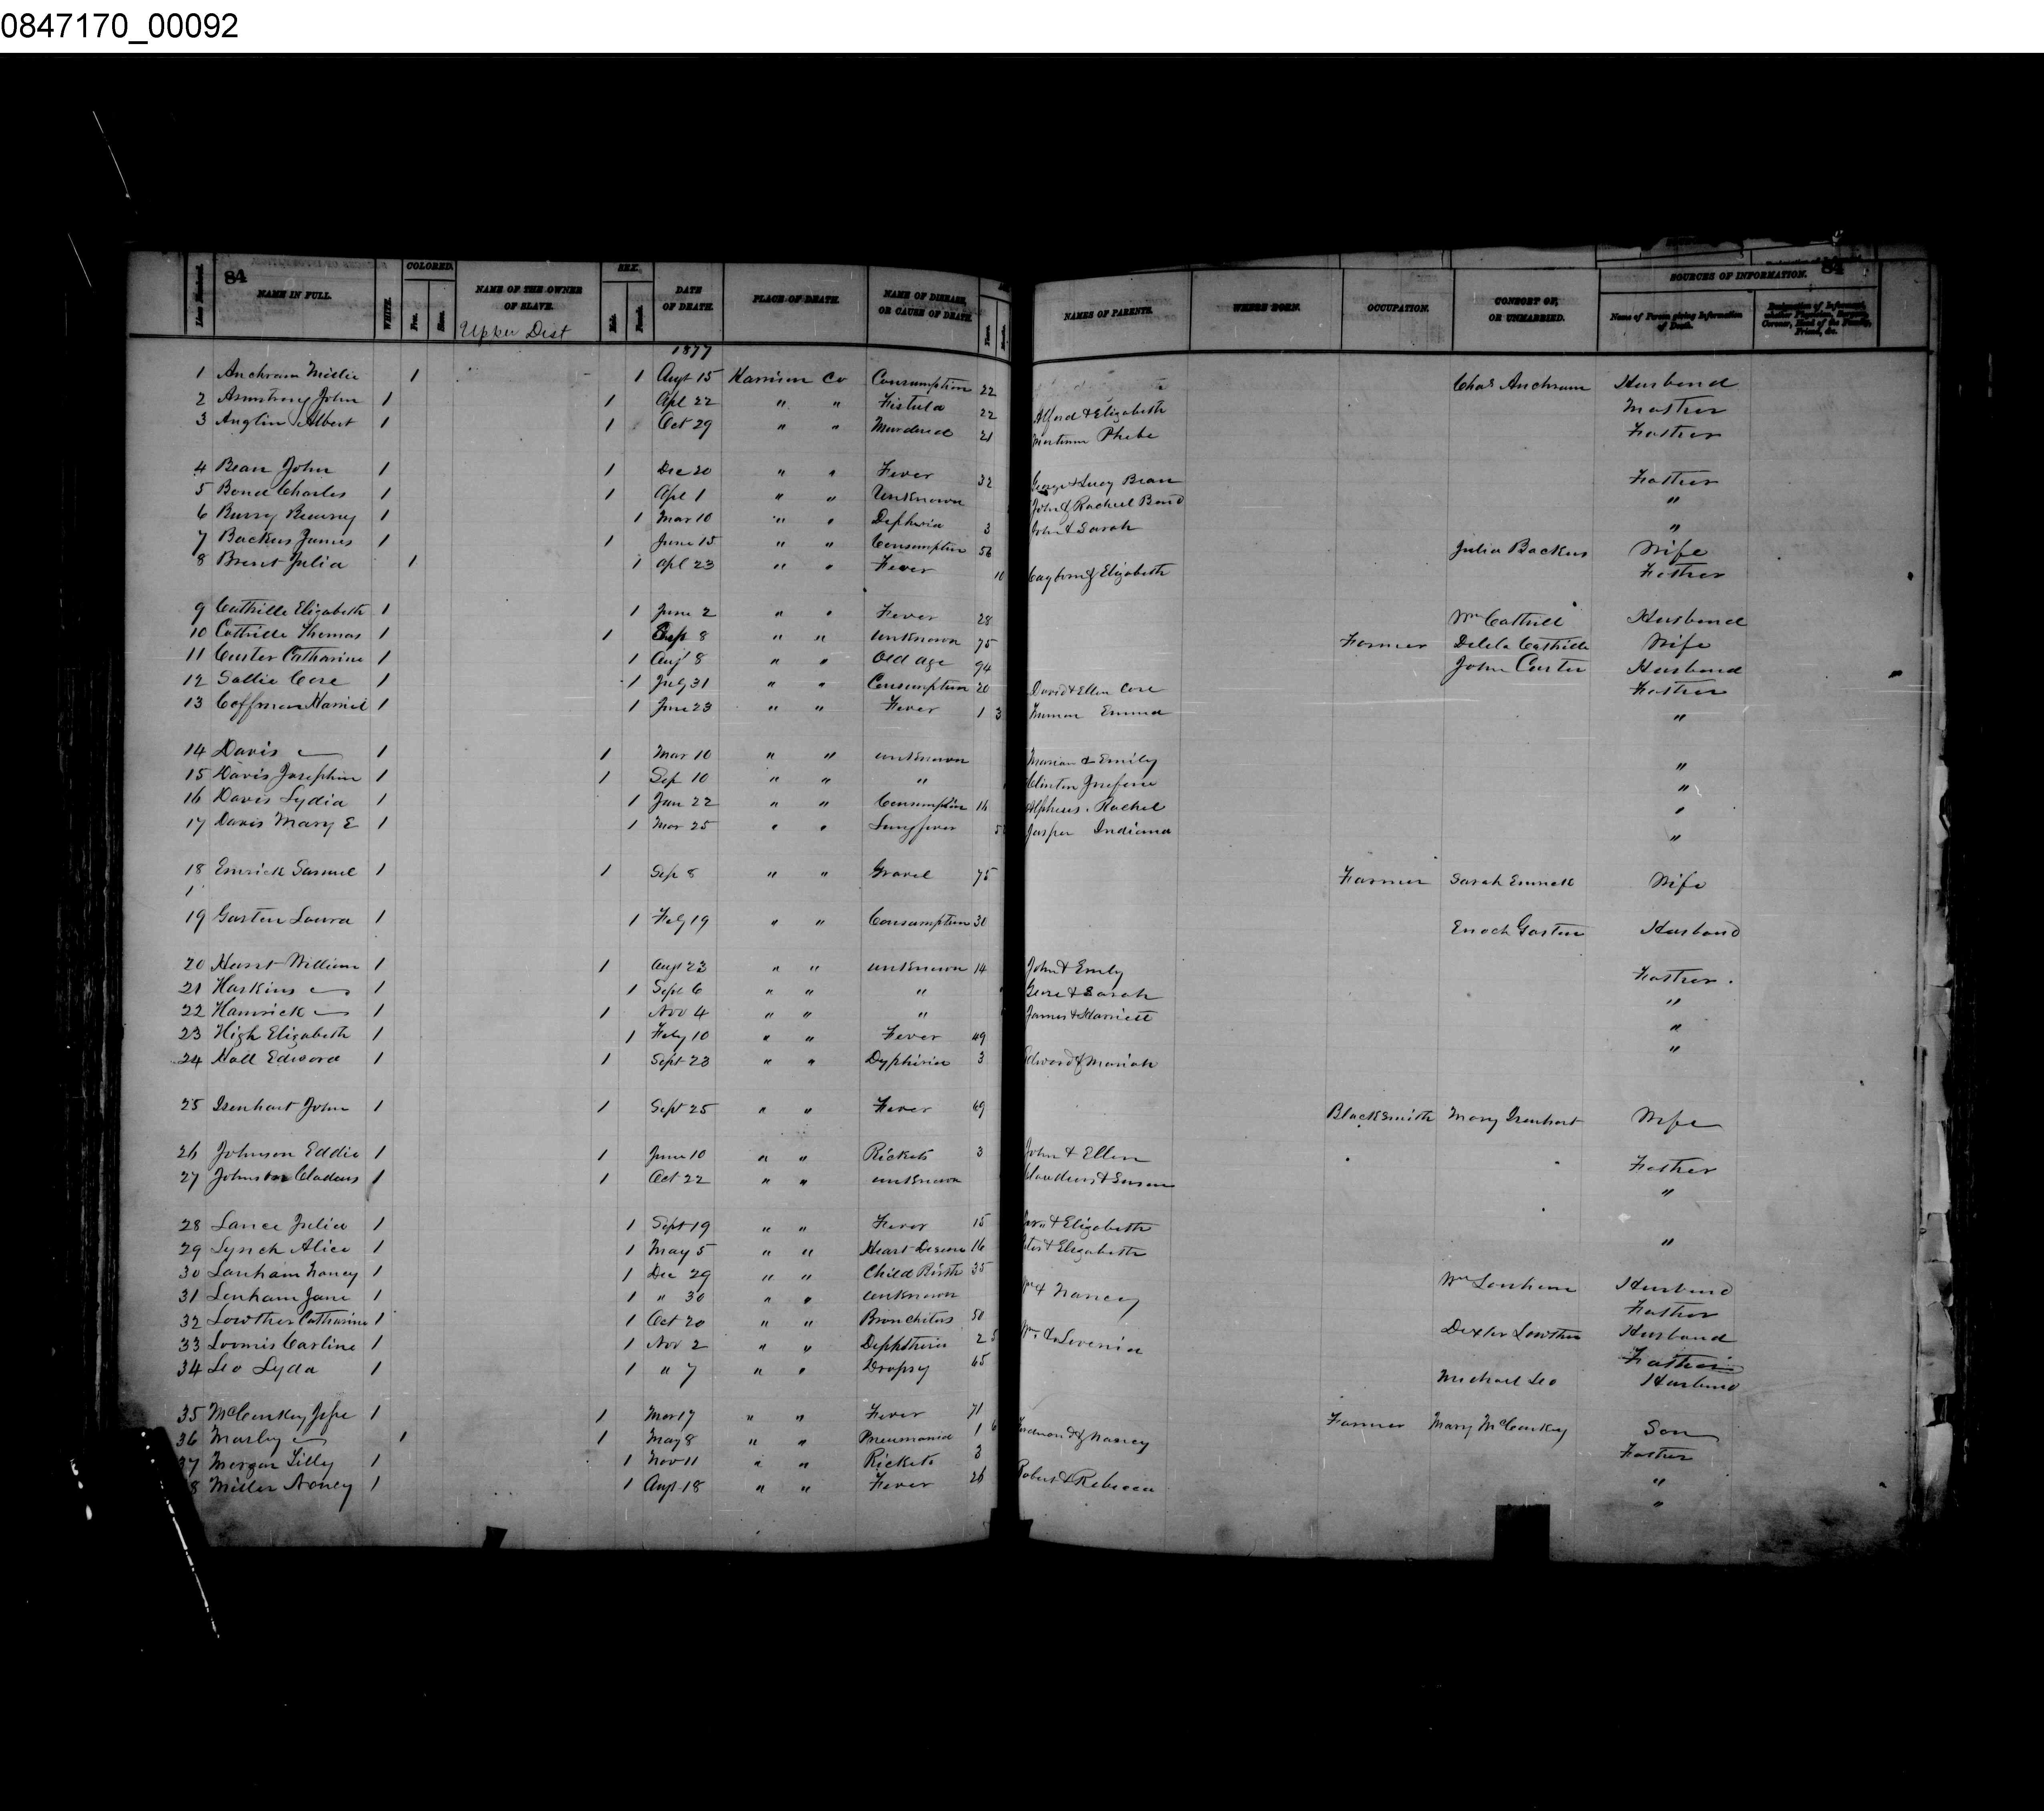 0847170_00092
84
84
Line Numbered. NAME IN FULL. WHITE. COLORED. Free. Slave. NAME OF THE OWNER OF SLAVE. SEX. Male. Female. DATE OF DEATH. PLACE OF DEATH. NAME OF DISEASE, OR CAUSE OF DEATH. Years. NAMES OF PARENTS. WHERE BORN. OCCUPATION. CONSORT OF, OR UNMARRIED. SOURCES OF INFORMATION. Name of Person giving Information of Death. Designation of Informant, whether Physician, Surgeon, Coroner, Head of the Family, Friend, &c.
Upper Dist
1877
1 Anchram Millie 1 1 Augt 15 Harrison Co Consumption 22 Chas Anchram Husband
2 Armstrong John 1 1 Apl 22 " " Fistula 22 Alford & Elizabeth Mother
3 Anglin Albert 1 1 Oct 29 " " Murdered 21 Phebe Father
4 Bean John 1 1 Dec 20 " " Fever 32 George & Lucy Bean Father
5 Bond Charles 1 1 Apl 1 " " Unknown John & Racheel Bond "
6 1 1 Mar 10 " " Dipheria 3 John & Sarah "
7 Backus James 1 1 June 15 " " Consumption 56 Julia Backus Wife
8 Julia 1 1 Apl 23 " " Fever 10 & Elizabeth Father
9 Cathille Elizabeth 1 1 June 2 " " Fever 28 Wm Cathill Husband
10 Cathille Thomas 1 1 Sep 8 " " unknown 75 Farmer Delila Cathille Wife
11 Custer Catharine 1 1 Augt 8 " " Old age 94 John Custer Husband
12 Sallie Core 1 1 July 31 " " Consumption 20 David & Ellen Core Father
13 Coffman Harriet 1 1 June 23 " " Fever 1 3 Truman Emma "
14 Davis — 1 1 Mar 10 " " unknown Marion & Emily "
15 Davis Josephine 1 1 Sep 10 " " " Clinton Josefine "
16 Davis Lydia 1 1 Jan 22 " " Consumption 16 Alpheus. Rachel "
17 Davis Mary E 1 1 Mar 25 " " Lung fever 5 Jasper Indiana "
18 Emrick Samuel 1 1 Sep 8 " " Gravel 75 Farmer Sarah Emrick Wife
1
19 Gaston Laura 1 1 Feby 19 " " Consumption 30 Enoch Gaston Husband
20 Hurst William 1 1 Augt 23 " " unknown 14 John & Emily Father.
21 Haskins — 1 1 Sept 6 " " " & Sarah "
22 Hamrick — 1 1 Nov 4 " " " James & Harriett "
23 High Elizabeth 1 1 Feby 10 " " Fever 49 "
24 Hall Edward 1 1 Sept 23 " " Dyphiria 3 Edward & Mariah
25 Isenhart John 1 1 Sept 25 " " Fever 69 Blacksmith Mary Isenhart Wife
26 Johnson Eddie 1 1 June 10 " " Rickets 3 John & Ellen Father
27 Johnson Cladeus 1 1 Oct 22 " " unknown Claudius & Susan "
28 Lance Julia 1 1 Sept 19 " " Fever 15 & Elizabeth
29 Lynch Alice 1 1 May 5 " " Heart Disease 16 Peter & Elizabeth "
30 Lanham Nancy 1 1 Dec 29 " " Child Birth 35 Wm Lanham Husband
31 Lanham Jane 1 1 " 30 " " unknown Wm & Nancy Father
32 Lowther Catharine 1 1 Oct 20 " " Bronchitus 50 Dexter Lowther Husband
33 Loomis Carline 1 1 Nov 2 " " Diphtheria 2 5 Wm & Lovenia Father
34 Leo Lyda 1 1 " 7 " " Dropsy 65 Michael Leo Husband
35 McConkey Jesse 1 1 Mar 17 " " Fever 71 Farmer Mary McConkey Son
36 Mosley — 1 1 May 8 " " Pneumonia 1 6 & Nancy Father
37 Morgan Lilly 1 1 Nov 11 " " Rickets 3 "
8 Miller Nancy 1 1 Augt 18 " " Fever 26 Robert & Rebecca "